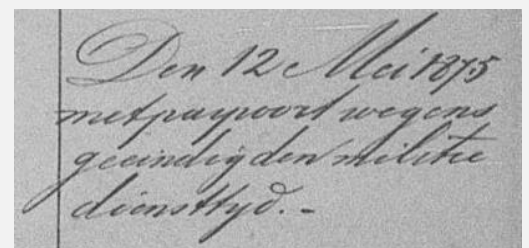 Den 12 Mei 1875
met paspoort wegens
geeindigden militie
diensttyd. -